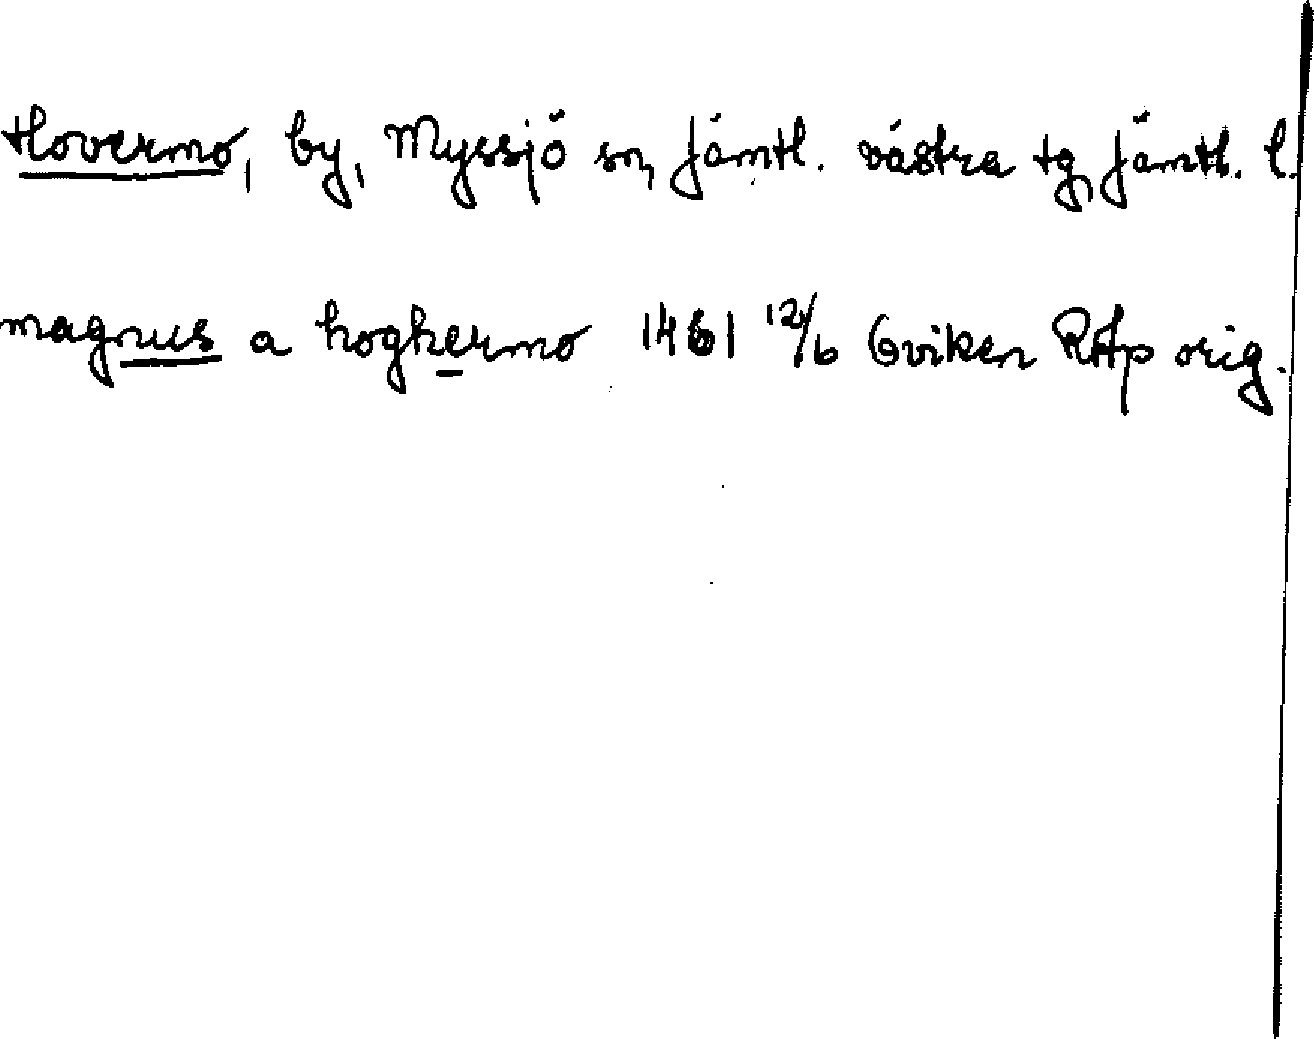 Hovermo, by, Myssjö sn, Jämtl. västra tg, Jämtl. l.
magnus a hoghermo 1461 12/6 Oviken RAp orig.